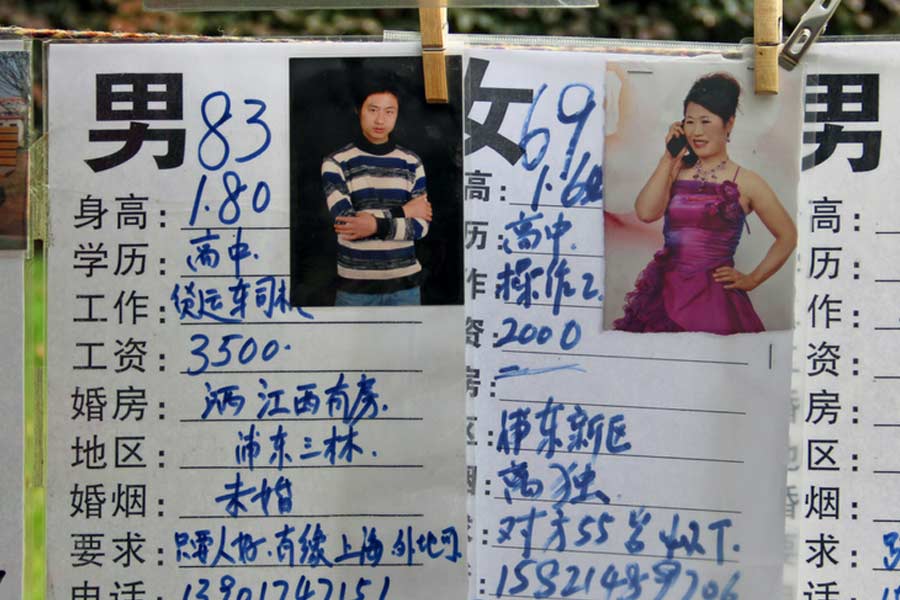 男 83
身高: 1.80
学历: 高中.
工作: 货运车司机
工资: 3500.
婚房: 江西有房.
地区: 浦东三林.
婚烟: 未婚
要求: 只要人好.有缘上海外地可.
电话: 13901747151
女 69
高: 1.62
历: 高中.
作: 操作工.
资: 2000
房:
区: 浦东新区
烟: 离独.
求: 对方55岁以下.
男
高:
历:
作:
资:
房:
区:
烟:
求:
话: